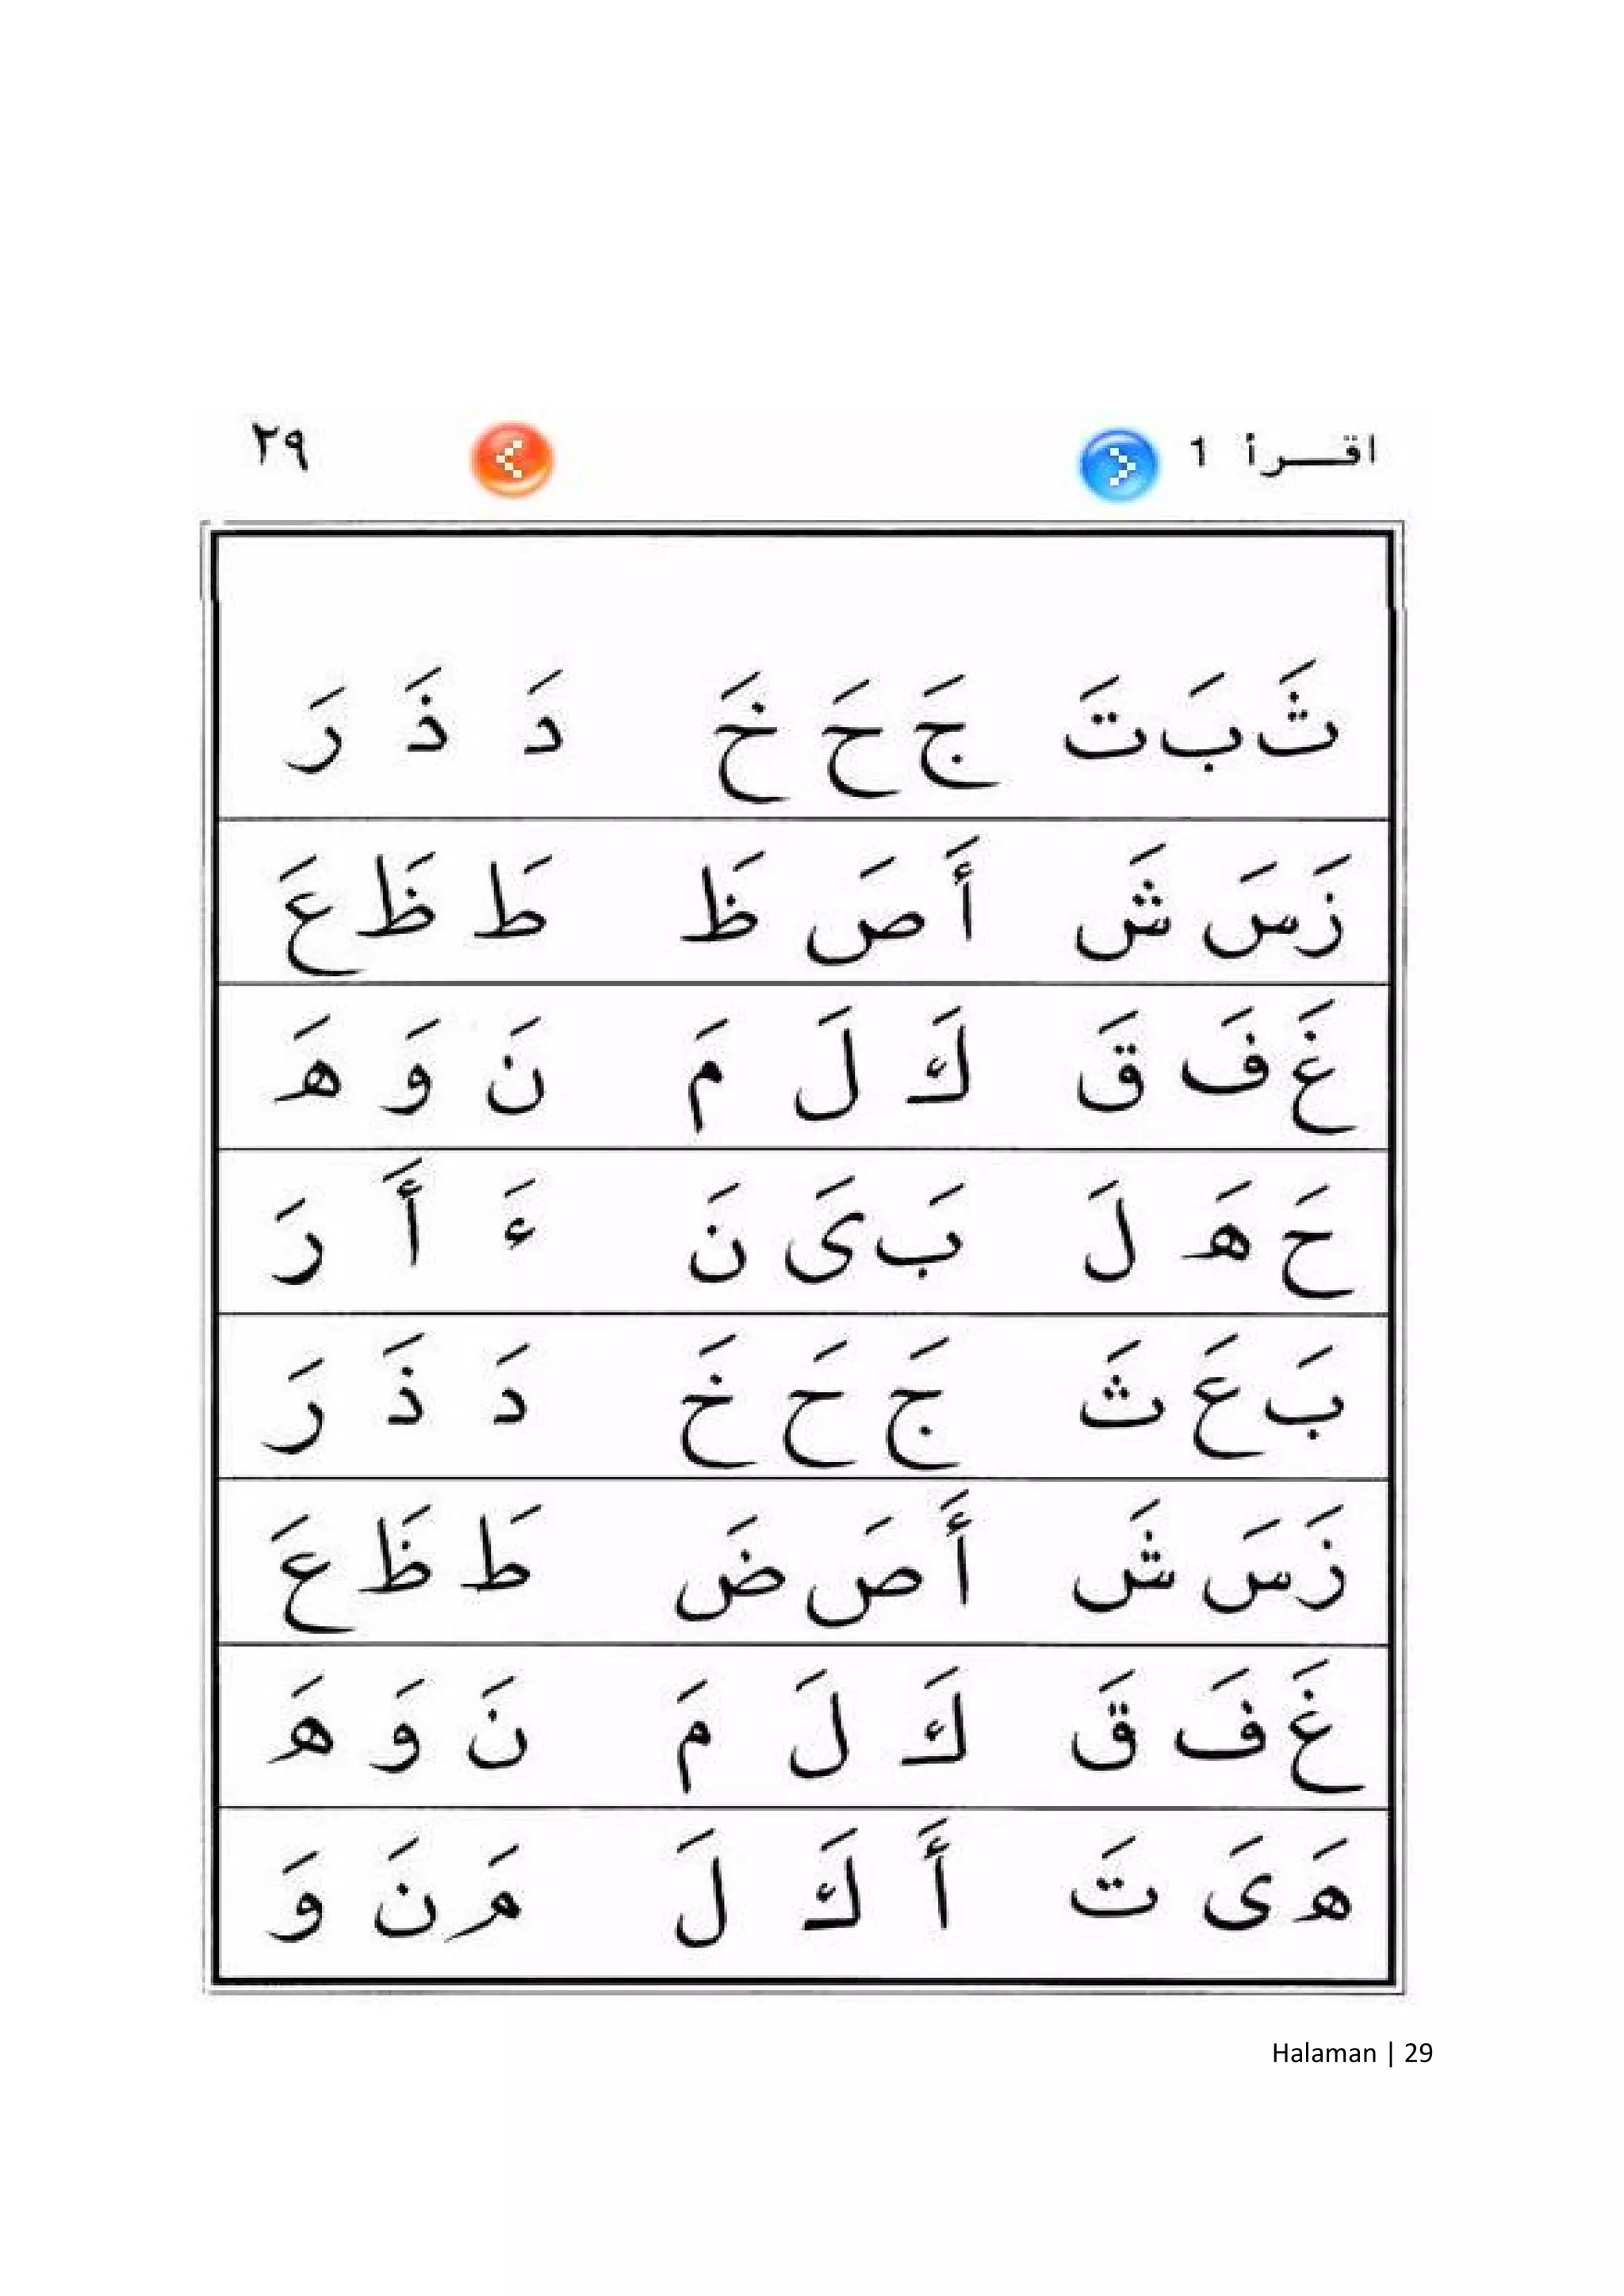 اقـــرأ 1 ٢٩
ثَ بَ تَ جَ حَ خَ دَ ذَ رَ
زَ سَ شَ أَ صَ ظَ طَ ظَ عَ
غَ فَ قَ كَ لَ مَ نَ وَ هَ
حَ هَ لَ بَ ىَ نَ ءَ أَ رَ
بَ عَ ثَ جَ حَ خَ دَ ذَ رَ
زَ سَ شَ أَ صَ ضَ طَ ظَ عَ
غَ فَ قَ كَ لَ مَ نَ وَ هَ
هَ ىَ تَ أَ كَ لَ مَ نَ وَ
Halaman | 29